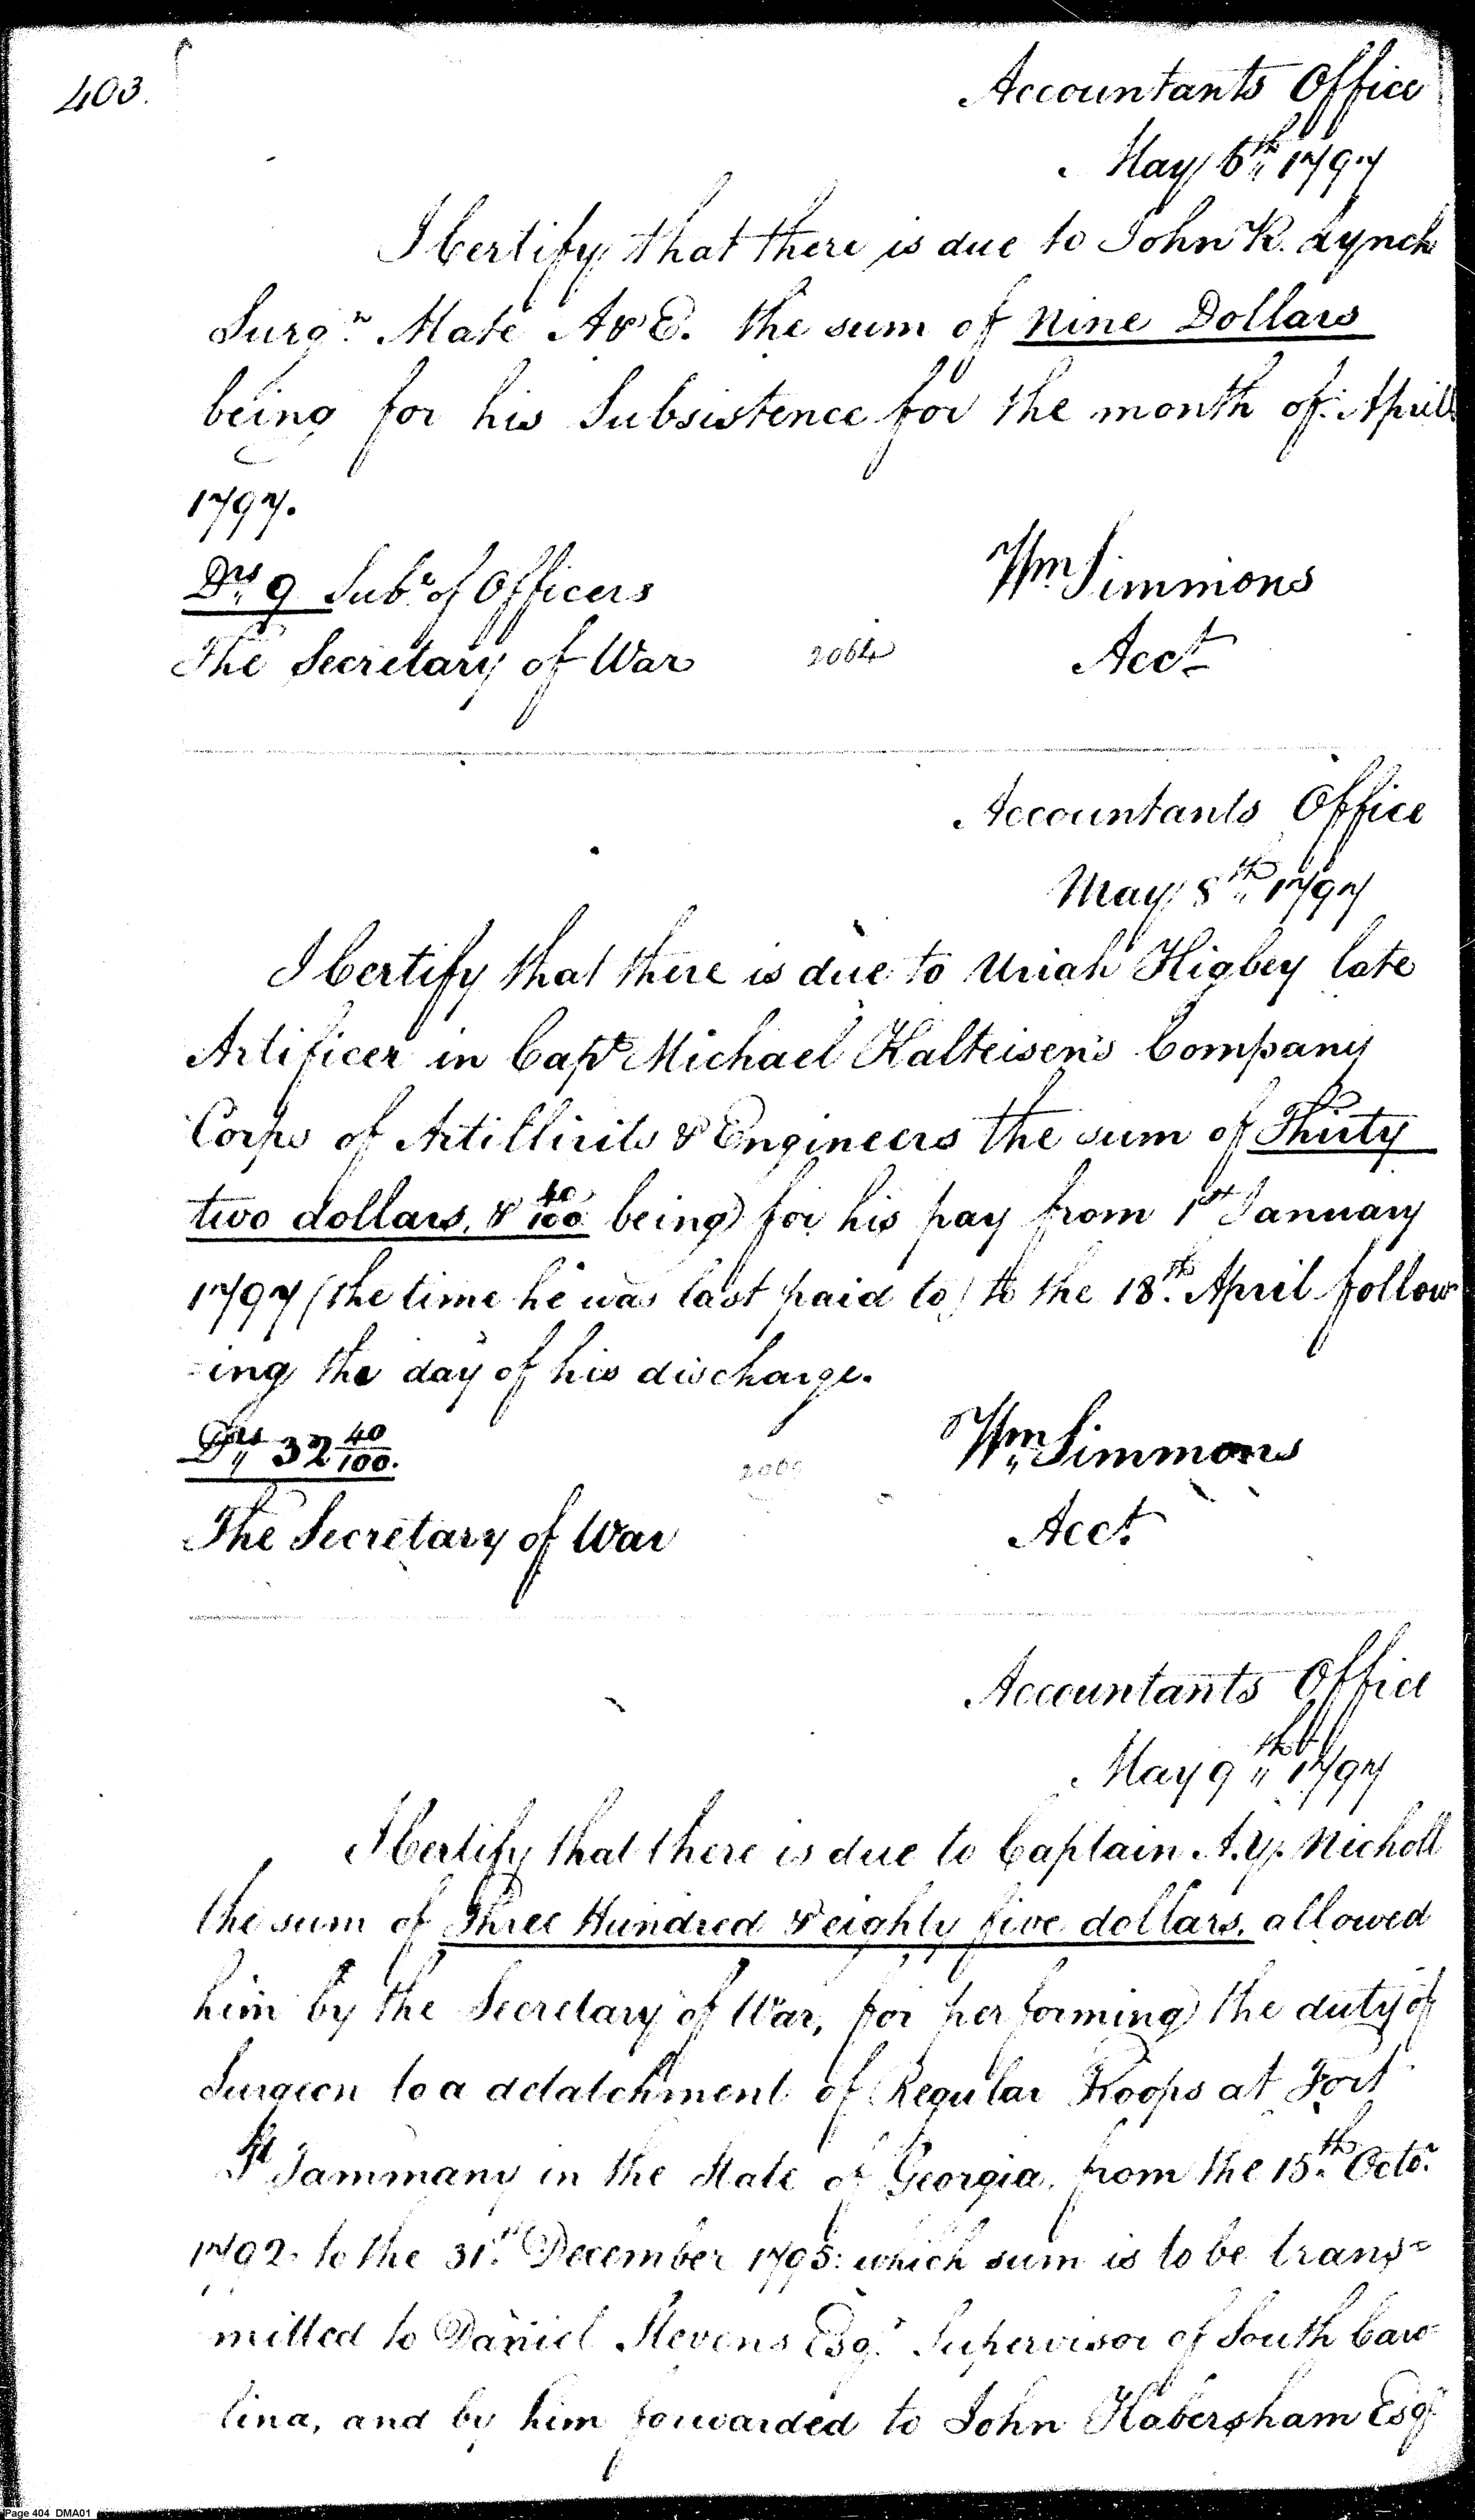 403.
Accountants Office
May 6th 1797
I Certify that there is due to John R. Lynch
Surgn. Mate A & E. the sum of Nine Dollars
being for his Subsistence for the month of April
1797.
Drs 9 Subs. of Officers
Wm Simmons
The Secretary of War 2064 Acct.
Accountants Office
May 8th 1797
I Certify that there is due to Uriah Higbey late
Artificer in Capt Michael Kalteisen's Company
Corps of Artillirits & Engineers the sum of Thirty
two dollars, & 40/100 being for his pay from 1st January
1797 (the time he was last paid to) to the 18th April follow
-ing the day of his discharge.
Drs 32 40/100.
Wm Simmons
The Secretary of War Acct.
Accountants Office
May 9th 1797
I Certify that there is due to Captain A. Y. Nicholl
the sum of Three Hundred & eighty five dollars, allowed
him by the Secretary of War, for performing the duty of
Surgeon to a detatchment of Regular Troops at Fort
St Tammany in the State of Georgia, from the 15th Octo.
1792 to the 31st December 1795: which sum is to be trans-
mitted to Daniel Stevens Esqr. Supervisor of South Caro
lina, and by him forwarded to John Habersham Esqr
Page 404 DMA01